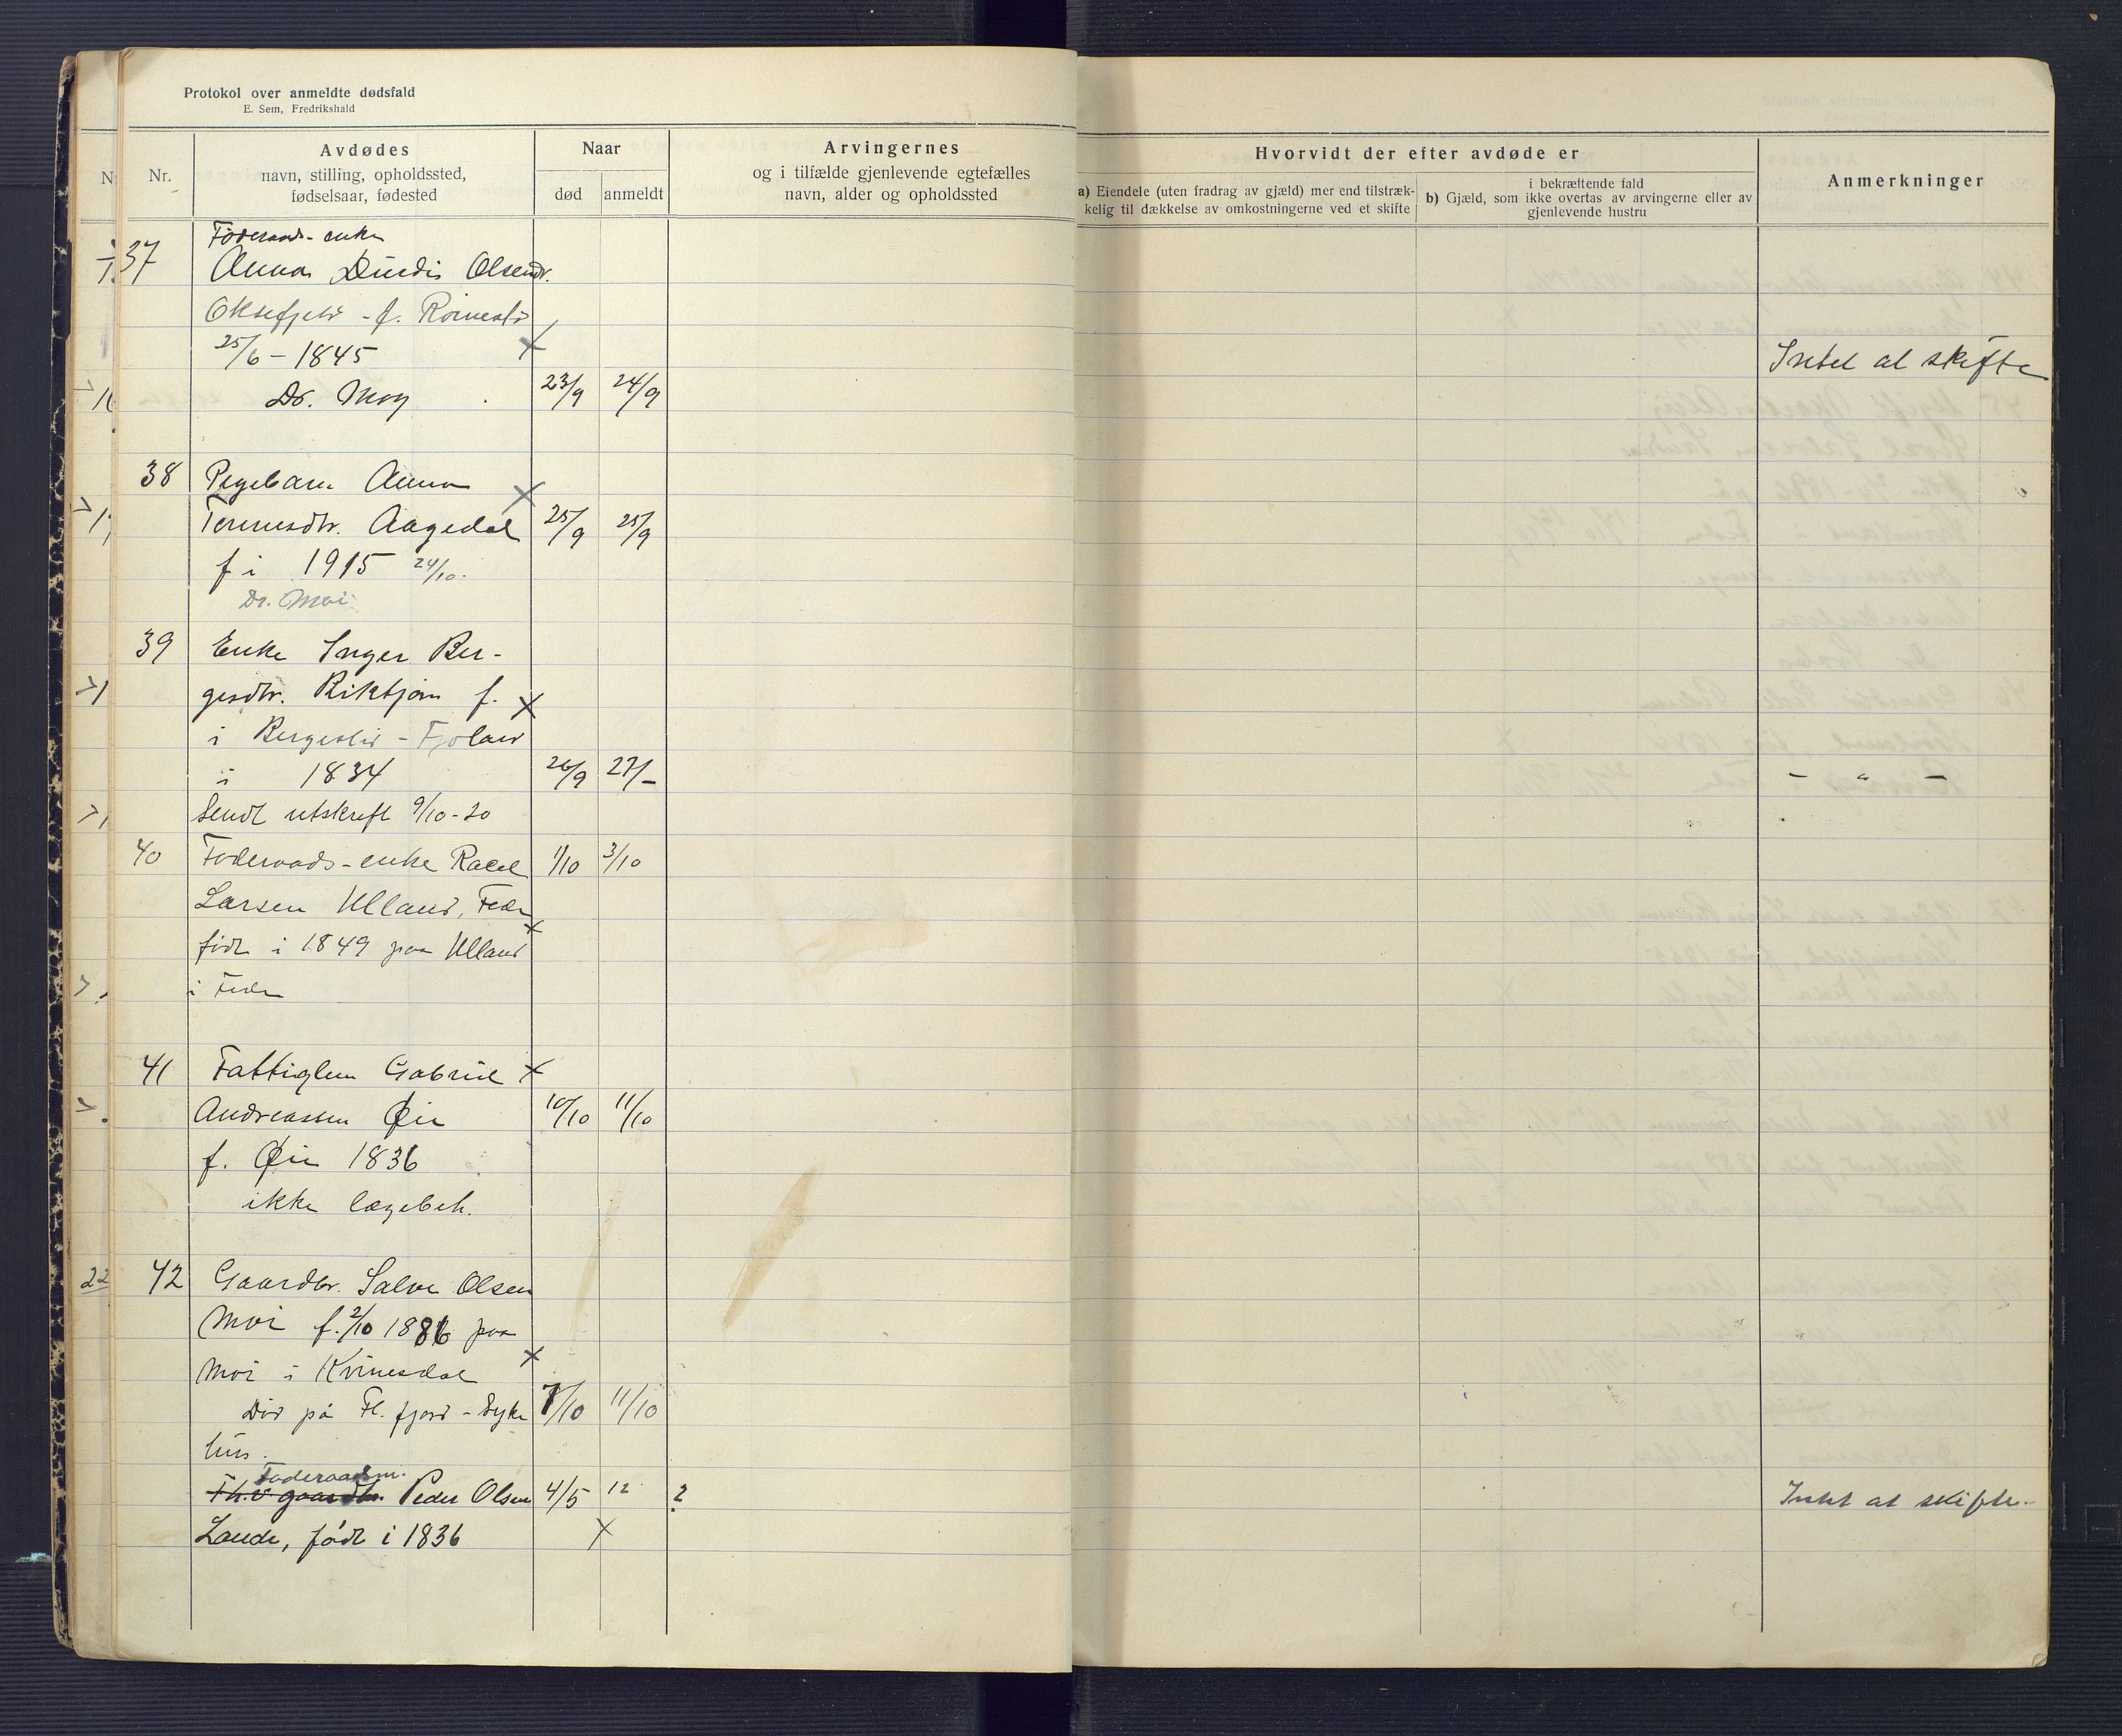 Protokol over anmeldte dødsfald
E. Sem, Fredrikshald
Nr.
Avdødes
navn, stilling, opholdssted,
fødselsaar, fødested
Naar
død
anmeldt
Arvingernes
og i tilfælde gjenlevende egtefælles
navn, alder og opholdssted
Hvorvidt der efter avdøde er
a) Eiendele (uten fradrag av gjæld) mer end tilstræk-
kelig til dækkelse av omkostningerne ved et skifte
i bekræftende fald
b) Gjæld, som ikke overtas av arvingerne eller av
gjenlevende hustru
Anmerkninger
Føderaads-enke
37 Anna Olsendr.
Oksefjeld - f.
25/6 - 1845 X
Intet at skifte
Dr. Moy 23/9 24/9
38 Pegebarn Anna X
Tønnesdtr. Aagedal 25/9 25/9
f i 1915 24/10.
Dr. Moi
39 Enke Inger Ber-
gesdtr. Rikstjøn f. X
i Bergeslid - Fjotland
i 1834 26/9 27/- - " -
Sendt utskrift 9/10-20
40 Føderaads-enke Rael 1/10 3/10
Larsen Ulland, Feda X
født i 1849 paa Ulland
i Feda
41 Fattiglem Gabriel X
Andreassen Øie 10/10 11/10
f. Øie 1836
ikke lægebeh.
22
42 Gaardbr. Salve Olsen
Moi f. 2/10 1886 paa
Moi i Kvinesdal X
Død på Fl. fjord - Syke 7/10 11/10
hus.
Føderaadsm.
Peder Olsen 4/5 12 ? Intet at skifte.
Lande, født i 1836 X